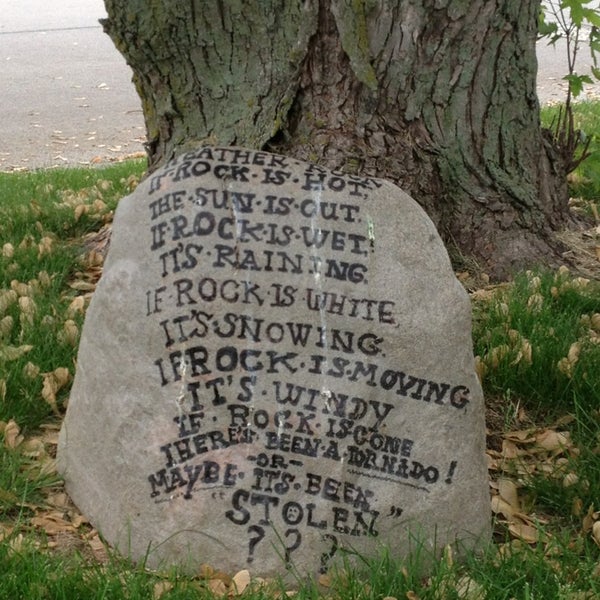 WEATHER ROCK
IF·ROCK·IS·HOT,
THE·SUN·IS·OUT.
IF·ROCK·IS·WET,
IT'S·RAINING.
IF·ROCK·IS·WHITE,
IT'S·SNOWING.
IF·ROCK·IS·MOVING,
IT'S·WINDY.
IF·ROCK·IS·GONE
THERE'S·BEEN·A·TORNADO!
-OR-
MAYBE·ITS·BEEN
"STOLEN"
? ? ?